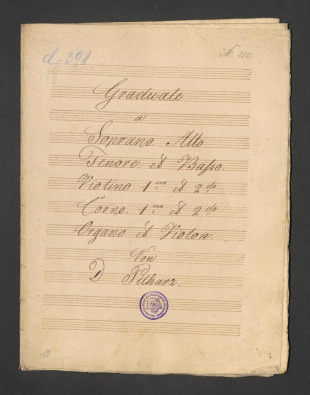 d-391
Graduale
a
Soprano Alto
Tenore et Basso.
Violino 1mo et 2do
Corno. 1mo et 2do
Organo et Violon.
Von
D